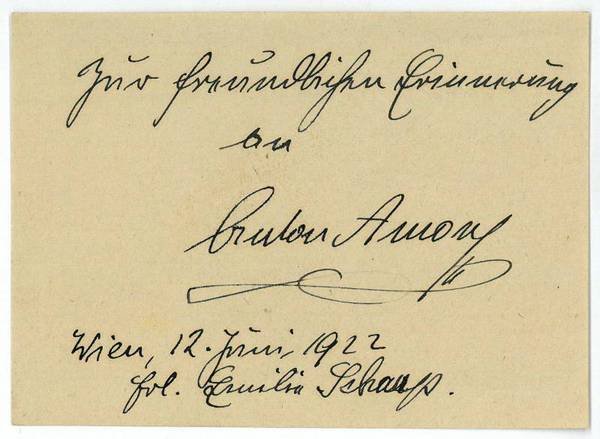 Zur freundlichen Erinnerung
an
Anton Amon
Wien, 12. Juni, 1922
frl. Emilie Schaup.